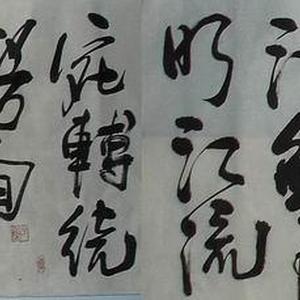 江無
明江流
宛轉繞
芳甸